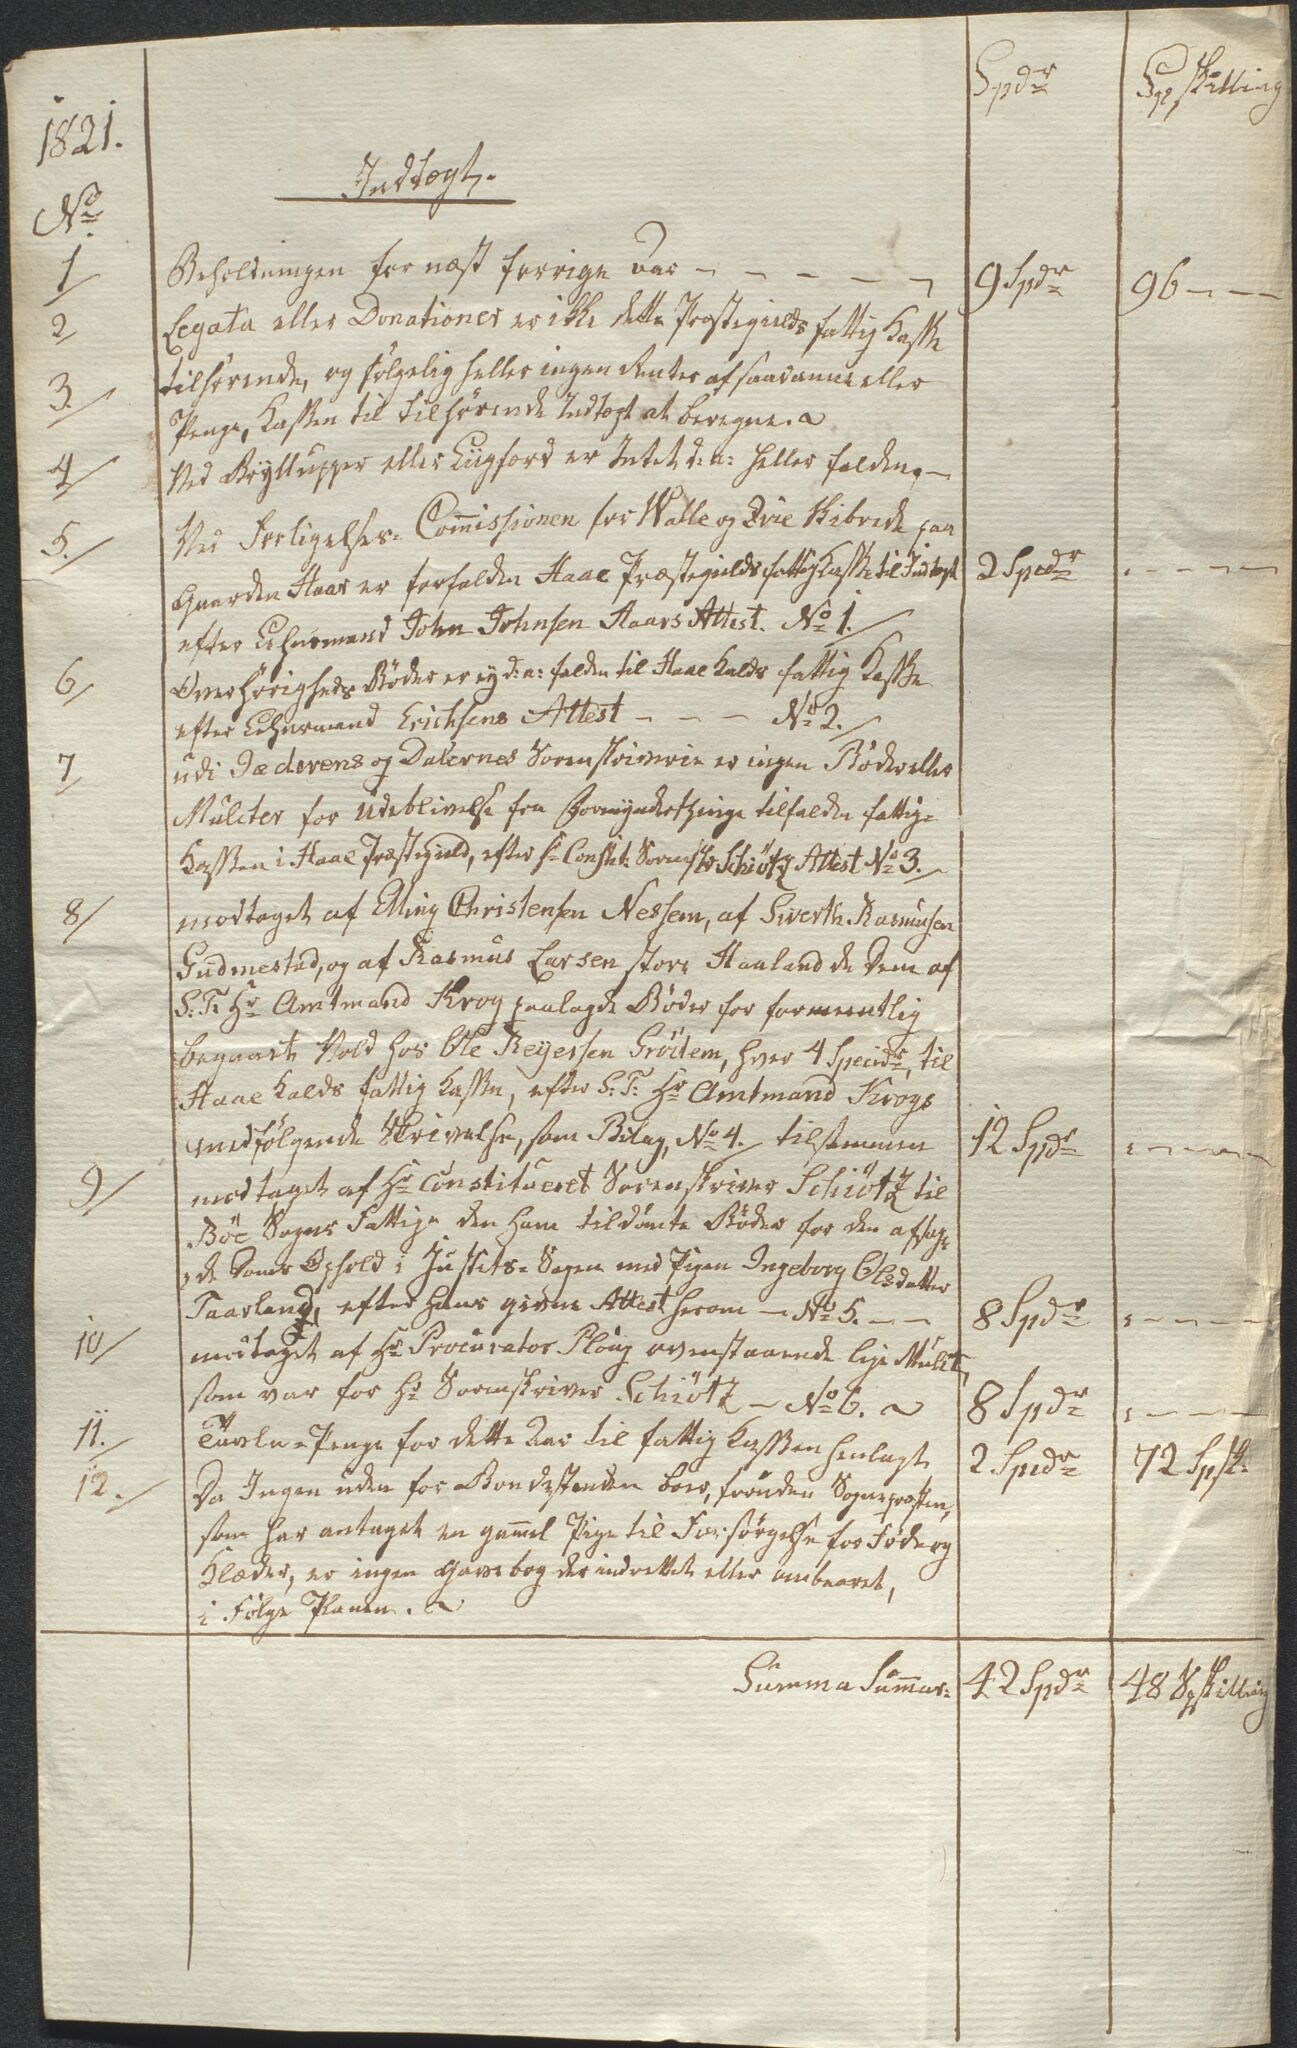 Spdr Sp skilling
1821.
Indtægt.
No
1/ Beholdningen for næst forrige Aar - - - - - - 9 Spdr 96 - - -
2 Legata eller Donationer er ikke dette Præstegields fattig Kasse
3./ tilhørende, og følgelig heller ingen Renter af saadanne eller
Penge, Kassen til tilhørende Indtægt at beregne.
4/ Ved Bryllupper eller Liigfærd er Intet d: a: heller falden, -
5./ Ved Forligelses-Commissionen for Walle og Qvie Skibrede paa
Gaarden Haar er forfalden Haae Præstegields fattig Kasse til Indtægt 2 Specdr . - - - -
efter Lehnsmand John Johnsen Haars Attest. No 1./
6/ Overhørigheds Bøder er ey d: a: falden til Haae Kalds fattig Kasse
efter Lehnsmand Erichsens Attest - - - No 2./
7 udi Jæderens og Dalernes Sorenskriverie er ingen Bøder eller
Mulcter for Udeblivelse fra Formynderthinge tilfalden fattig-
Kassen i Haae Præstegield, efter Hr Constit: Sorenskr Schiötz Attest No 3./
8/ modtaget af Elling Christensen Nessem, af Siverth Rasmusen
Gudmestad, og af Rasmus Larsen store Haaland de dem af
S: T: Hr Amtmand Krog paalagde Bøder for formeentlig
begaaet Vold hos Ole Reyersen Gröttem, hver 4 Specidr, til
Haae Kalds fattig Kasse, efter S: T: Hr Amtmand Krogs
medfølgende Skrivelse, som Bilag, No 4./ tilsammen 12 Spdr : - - - -
9/ modtaget af Hr Constitueret Sorenskriver Schiötz til
Böe Sogns Fattige den ham tildömte Böder for den afsag-
de Doms Ophold i Justits-Sagen mod Pigen Ingeborg Olsdatter
Taarland, efter hans givne Attest herom - No 5. - - 8 Spdr : - - - -
10/ modtaget af Hr Procurator Ploug ovenstaaende lige Mulct,
som var for Hr Sorenskriver Schiötz - No 6. 8 Spdr : - - - -
11./ Tavle-Penge for dette Aar til fattig Kassen henlagt 2 Specdr 72 Spsk:
12./ Da Ingen uden for Bondestanden boer, foruden Sognepræsten,
som har antaget en gammel Pige til Forsørgelse for Føde og
Klæder, er ingen Gavebog der indrettet eller ombaaret,
i Følge Planen.
Summa Summar: 42 Spdr 48 Spskilling